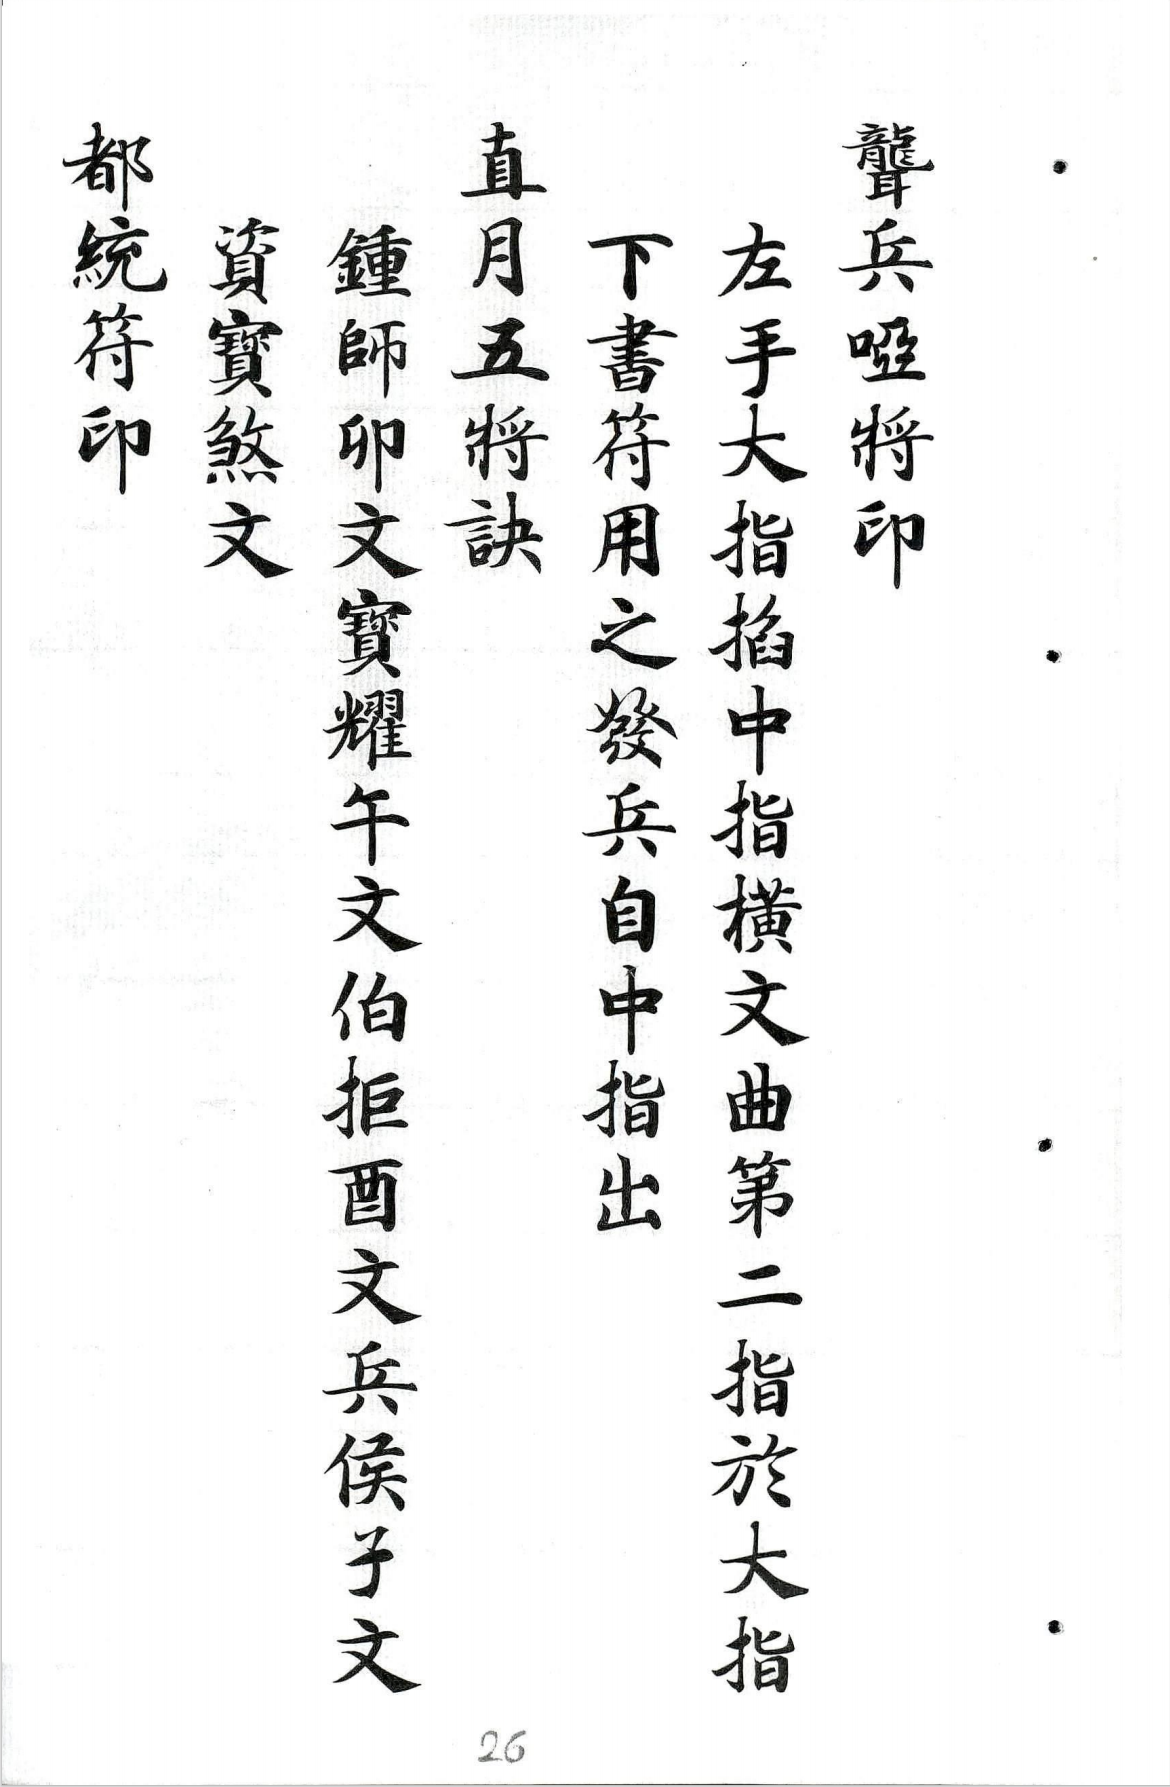 聾兵啞將印
左手大指掐中指橫文曲第二指於大指
下書符用之發兵自中指出
直月五將訣
鍾師卯文寶耀午文伯拒酉文兵侯子文
資寶煞文
都統符印
26